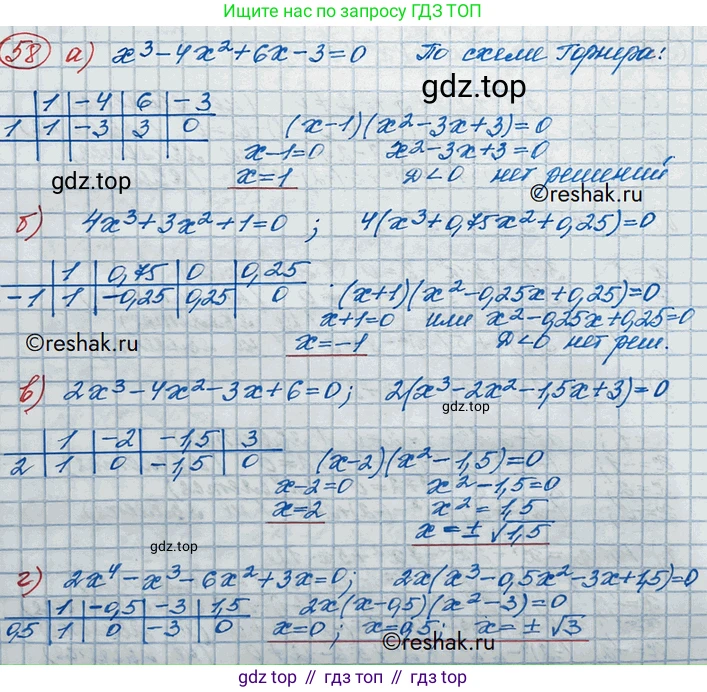 Ищите нас по запросу ГДЗ ТОП
58 а) x³ - 4x² + 6x - 3 = 0 По схеме Горнера:
gdz.top
1 -4 6 -3
1 1 -3 3 0 (x-1)(x² - 3x + 3) = 0
x - 1 = 0 x² - 3x + 3 = 0
gdz.top x = 1 Д < 0 нет решений
©reshak.ru
б) 4x³ + 3x² + 1 = 0 ; 4(x³ + 0,75x² + 0,25) = 0
1 0,75 0 0,25
-1 1 -0,25 0,25 0 (x+1)(x² - 0,25x + 0,25) = 0
x + 1 = 0 или x² - 0,25x + 0,25 = 0
©reshak.ru x = -1 Д < 0 нет реш.
в) 2x³ - 4x² - 3x + 6 = 0; 2(x³ - 2x² - 1,5x + 3) = 0
gdz.top
1 -2 -1,5 3
2 1 0 -1,5 0 (x-2)(x² - 1,5) = 0
x - 2 = 0 x² - 1,5 = 0
x = 2 x² = 1,5
x = ± √1,5
gdz.top
г) 2x⁴ - x³ - 6x² + 3x = 0; 2x(x³ - 0,5x² - 3x + 1,5) = 0
1 -0,5 -3 1,5 2x(x - 0,5)(x² - 3) = 0
0,5 1 0 -3 0 x = 0 ; x = 0,5 ; x = ± √3
©reshak.ru
gdz.top // гдз.топ // gdz.top // гдз.топ